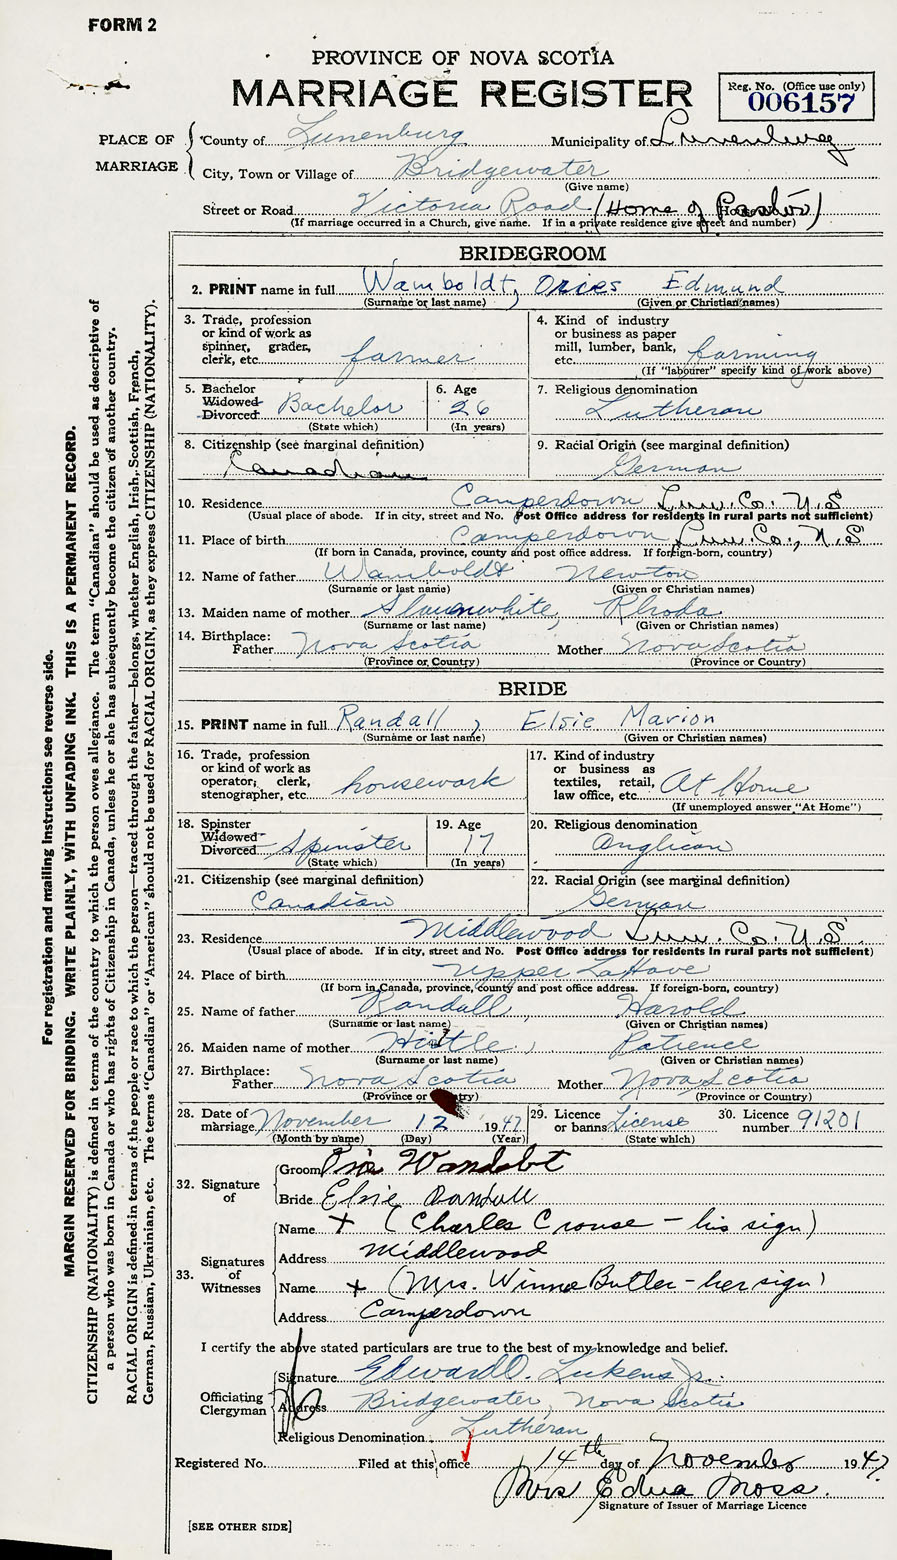 FORM 2
PROVINCE OF NOVA SCOTIA
MARRIAGE REGISTER
Reg. No. (Office use only)
006157
PLACE OF MARRIAGE
County of Lunenburg Municipality of Lunenburg
City, Town or Village of Bridgewater
(Give name)
Street or Road Victoria Road (Home of Pastor)
(If marriage occurred in a Church, give name. If in a private residence give street and number)
BRIDEGROOM
2. PRINT name in full Wamboldt, Edmund
(Surname or last name) (Given or Christian names)
3. Trade, profession or kind of work as spinner, grader, clerk, etc. farmer
4. Kind of industry or business as paper mill, lumber, bank, etc. farming
(If "labourer" specify kind of work above)
5. Bachelor Widowed Divorced Bachelor
(State which)
6. Age 26
(In years)
7. Religious denomination Lutheran
8. Citizenship (see marginal definition) Canadian
9. Racial Origin (see marginal definition) German
10. Residence Camperdown Lun. Co. N.S
(Usual place of abode. If in city, street and No. Post Office address for residents in rural parts not sufficient)
11. Place of birth Camperdown Lun. Co., N.S
(If born in Canada, province, county and post office address. If foreign-born, country)
12. Name of father Wamboldt Newton
(Surname or last name) (Given or Christian names)
13. Maiden name of mother Slauenwhite, Rhoda
(Surname or last name) (Given or Christian names)
14. Birthplace: Father Nova Scotia Mother Nova Scotia
(Province or Country) (Province or Country)
BRIDE
15. PRINT name in full Randall, Elsie Marion
(Surname or last name) (Given or Christian names)
16. Trade, profession or kind of work as operator, clerk, stenographer, etc. housework
17. Kind of industry or business as textiles, retail, law office, etc. At Home
(If unemployed answer "At Home")
18. Spinster Widowed Divorced Spinster
(State which)
19. Age 17
(In years)
20. Religious denomination Anglican
21. Citizenship (see marginal definition) Canadian
22. Racial Origin (see marginal definition) German
23. Residence Middlewood Lun. Co. N.S.
(Usual place of abode. If in city, street and No. Post Office address for residents in rural parts not sufficient)
24. Place of birth Upper LaHave
(If born in Canada, province, county and post office address. If foreign-born, country)
25. Name of father Randall, Harold
(Surname or last name) (Given or Christian names)
26. Maiden name of mother Patience
(Surname or last name) (Given or Christian names)
27. Birthplace: Father Nova Scotia Mother Nova Scotia
(Province or Country) (Province or Country)
28. Date of marriage November 12 1947
(Month by name) (Day) (Year)
29. Licence or banns License
(State which)
30. Licence number 91201
32. Signature of
Groom
Bride Elsie Randall
33. Signatures of Witnesses
Name + (Charles Crouse - his sign)
Address Middlewood
Name + (Mrs. Winne Butler - her sign)
Address Camperdown
I certify the above stated particulars are true to the best of my knowledge and belief.
Officiating Clergyman
Signature Edward O. Lukens Jr.
Address Bridgewater, Nova Scotia
Religious Denomination Lutheran
Registered No. Filed at this office 14th day of November 1947
Mrs Edna Moss.
Signature of Issuer of Marriage Licence
[SEE OTHER SIDE]
For registration and mailing instructions see reverse side.
MARGIN RESERVED FOR BINDING. WRITE PLAINLY, WITH UNFADING INK. THIS IS A PERMANENT RECORD.
CITIZENSHIP (NATIONALITY) is defined in terms of the country to which the person owes allegiance. The term "Canadian" should be used as descriptive of
a person who was born in Canada or who has rights of Citizenship in Canada, unless he or she has subsequently become the citizen of another country.
RACIAL ORIGIN is defined in terms of the people or race to which the person—traced through the father—belongs, whether English, Irish, Scottish, French,
German, Russian, Ukrainian, etc. The terms "Canadian" or "American" should not be used for RACIAL ORIGIN, as they express CITIZENSHIP (NATIONALITY).